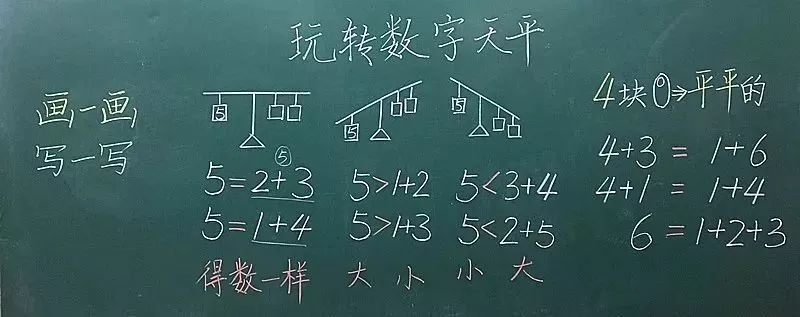 玩转数字天平
画一画
写一写
5
5=2+3
⑤
5=1+4
得数一样
5
5>1+2
5>1+3
大 小
5
5<3+4
5<2+5
小 大
4块①⇒平平的
4+3=1+6
4+1=1+4
6=1+2+3